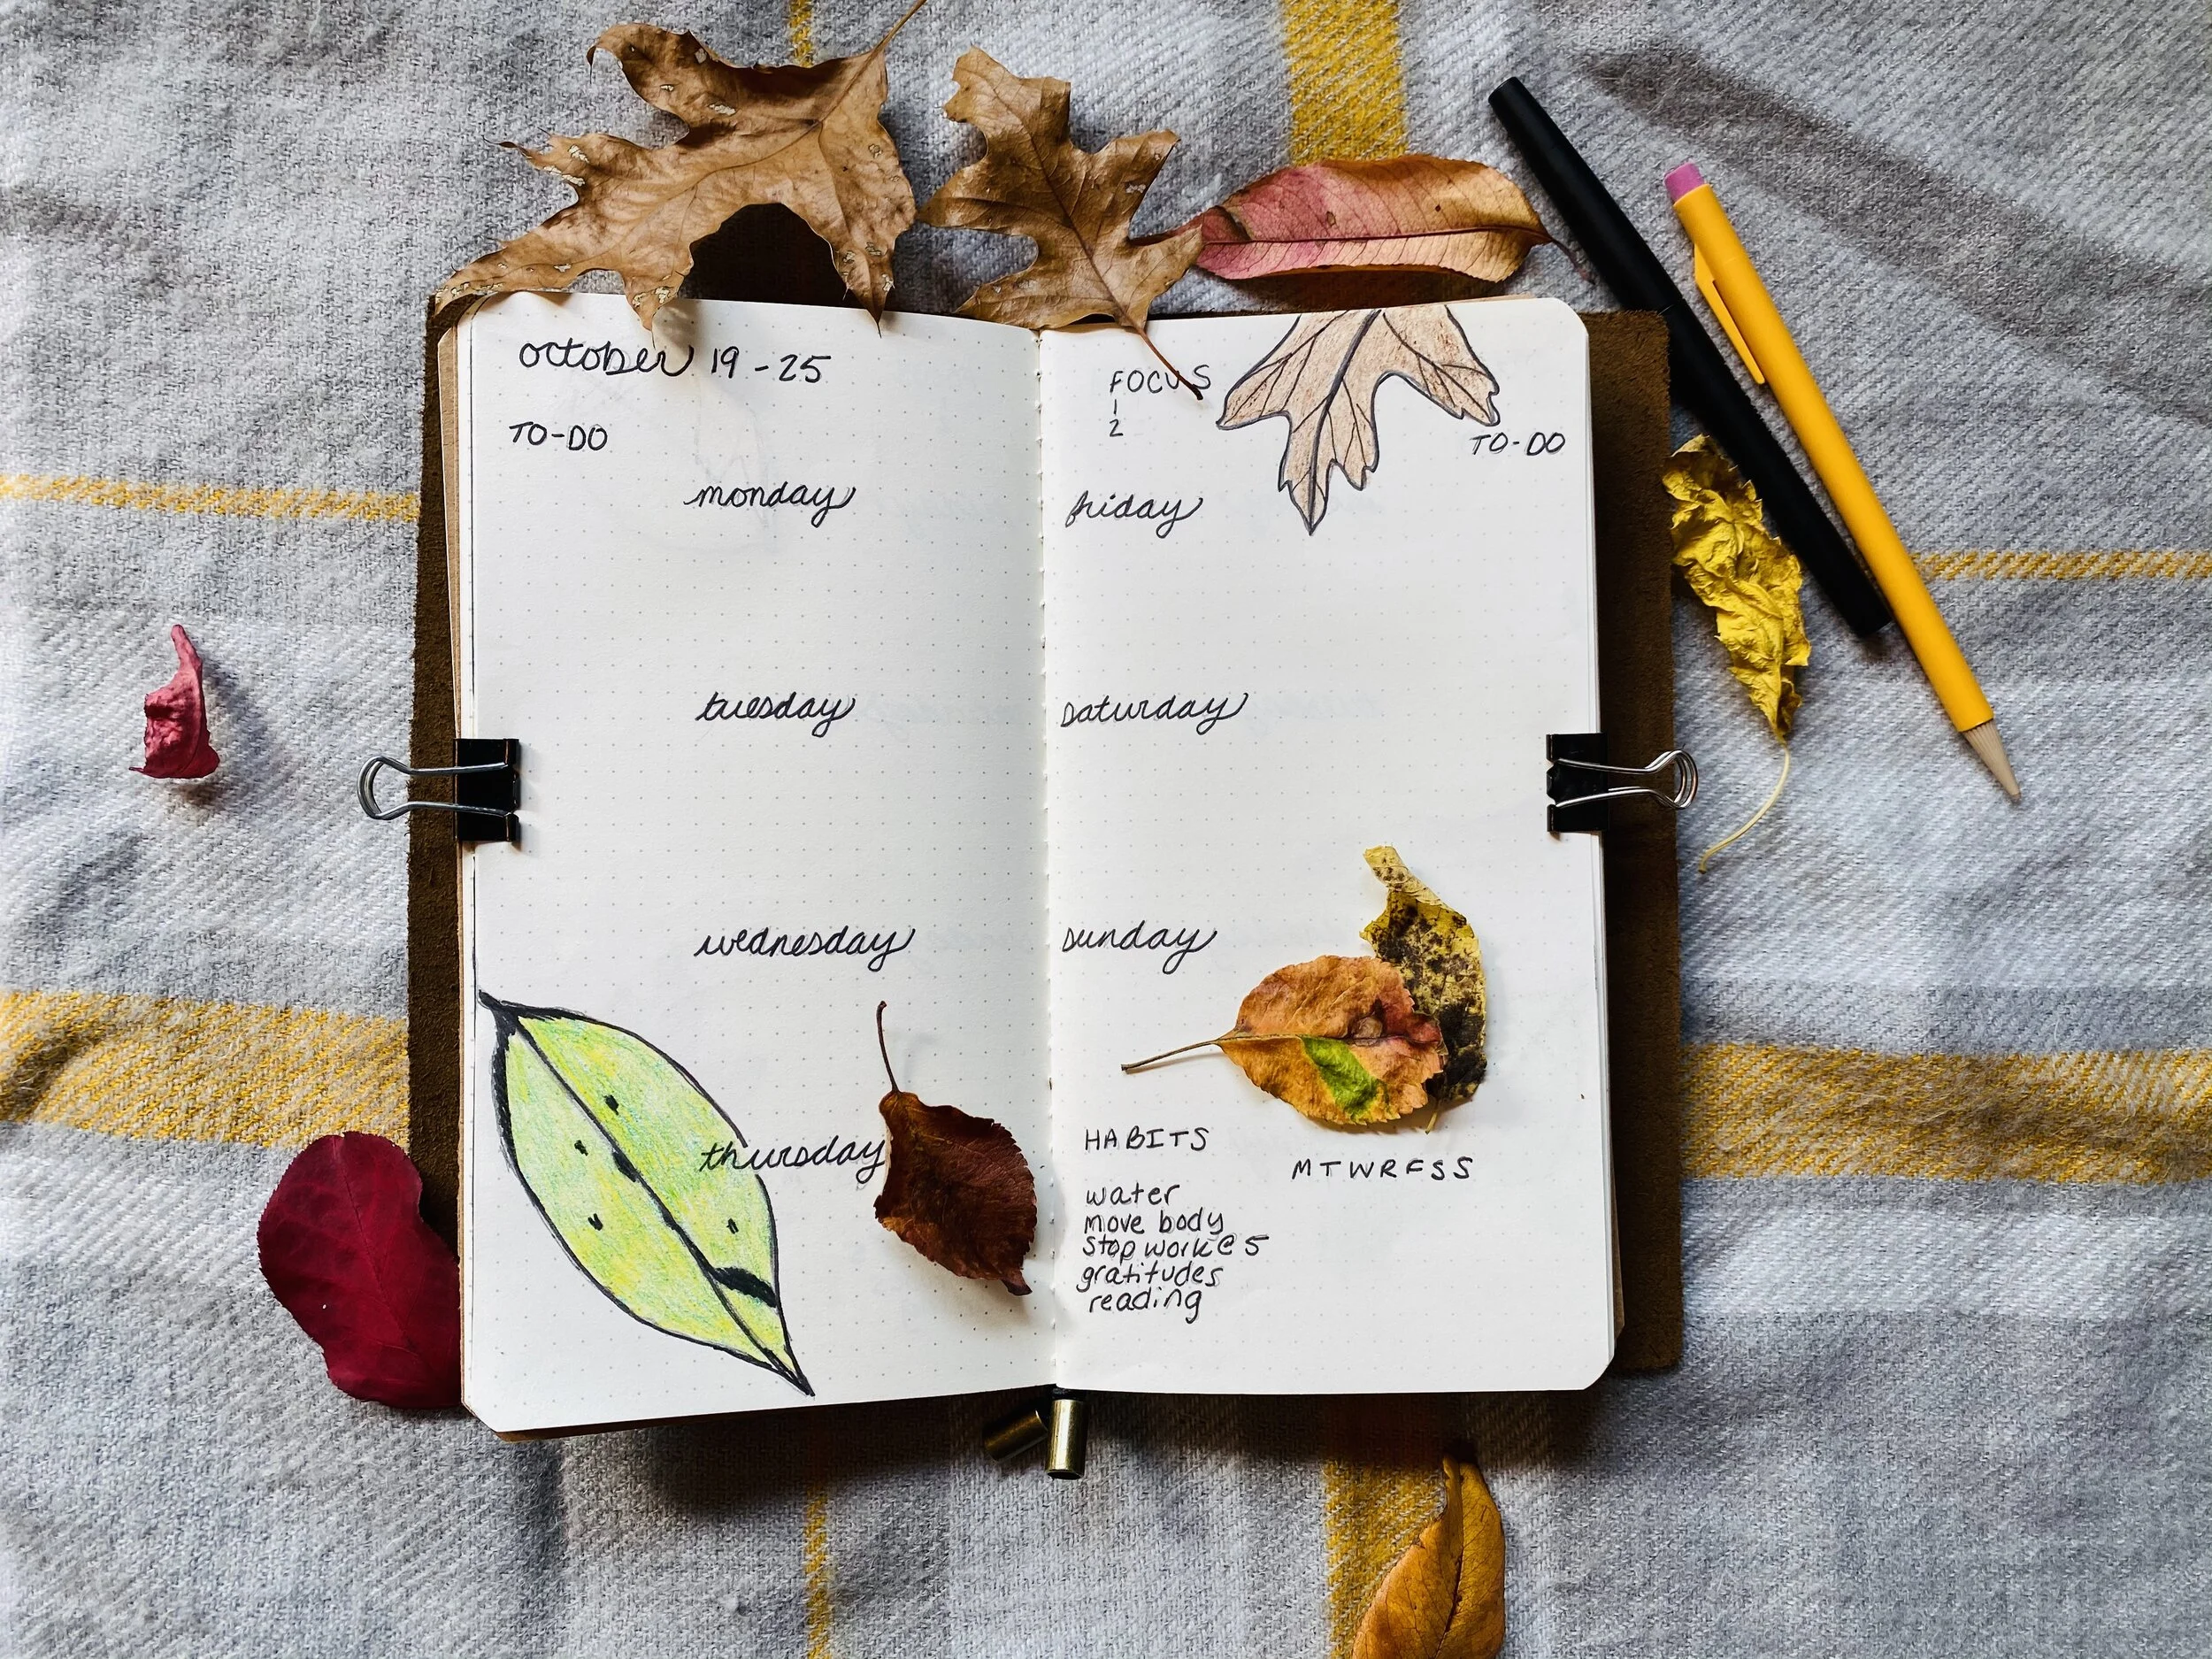 october 19-25
TO-DO
monday
tuesday
wednesday
thursday
FOCUS
1
2
TO-DO
friday
saturday
sunday
HABITS
MTWRFSS
water
move body
stop work @ 5
gratitudes
reading